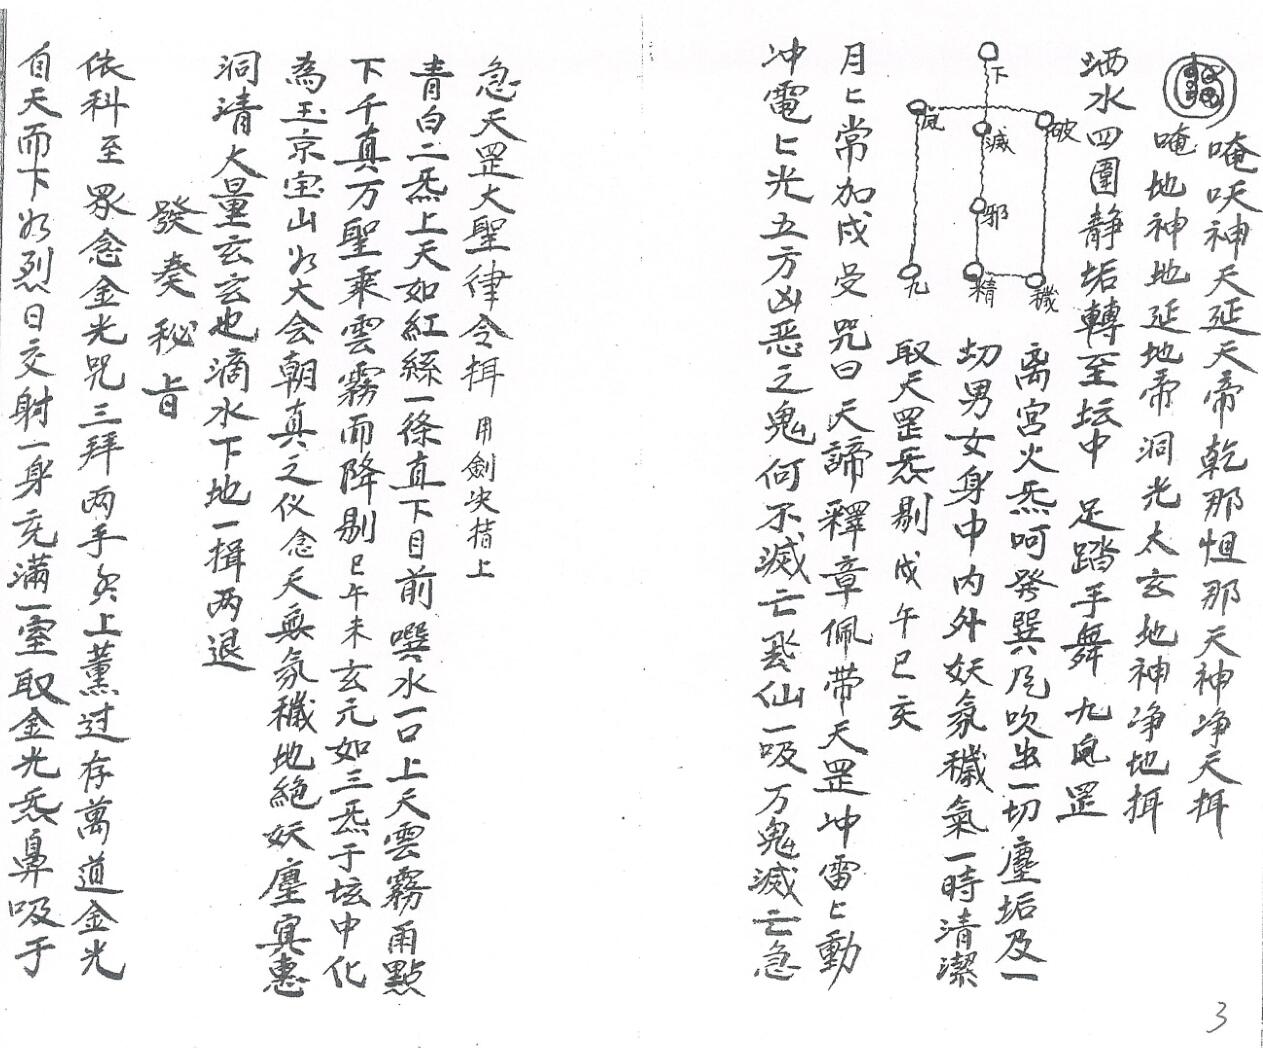 唵吙神天延天帝乾那怛那天神净天揖
唵地神地延地帝洞光太玄地神净地揖
洒水四圍静垢轉至坛中 足踏手舞 九鳳罡
下
鳳 滅 破
邪
九 精 穢
离宫火炁呵発巽凨吹出一切塵垢及一
切男女身中内外妖氛穢氣一時清潔
取天罡炁剔 戌午巳亥
月匕常加戌 受咒曰天諦釋章佩带天罡冲雷匕動
冲電匕光五方凶恶之鬼何不滅亡飛仙一吸万鬼滅亡急
急天罡大聖律令揖 用劍决揩上
青白二炁上天如紅絲一條直下目前噀水一口上天雲霧雨點
下千真万聖乘雲霧而降剔 巳午未玄元如三炁于坛中化
為玉京宝山如大会朝真之仪念天無氛穢地絶妖塵冥惠
洞清大量玄玄也滴水下地一揖两退
發奏秘旨
依科至眾念金光咒三拜两手於上薰过存萬道金光
自天而下如烈日交射一身充滿一室取金光炁鼻吸于
3